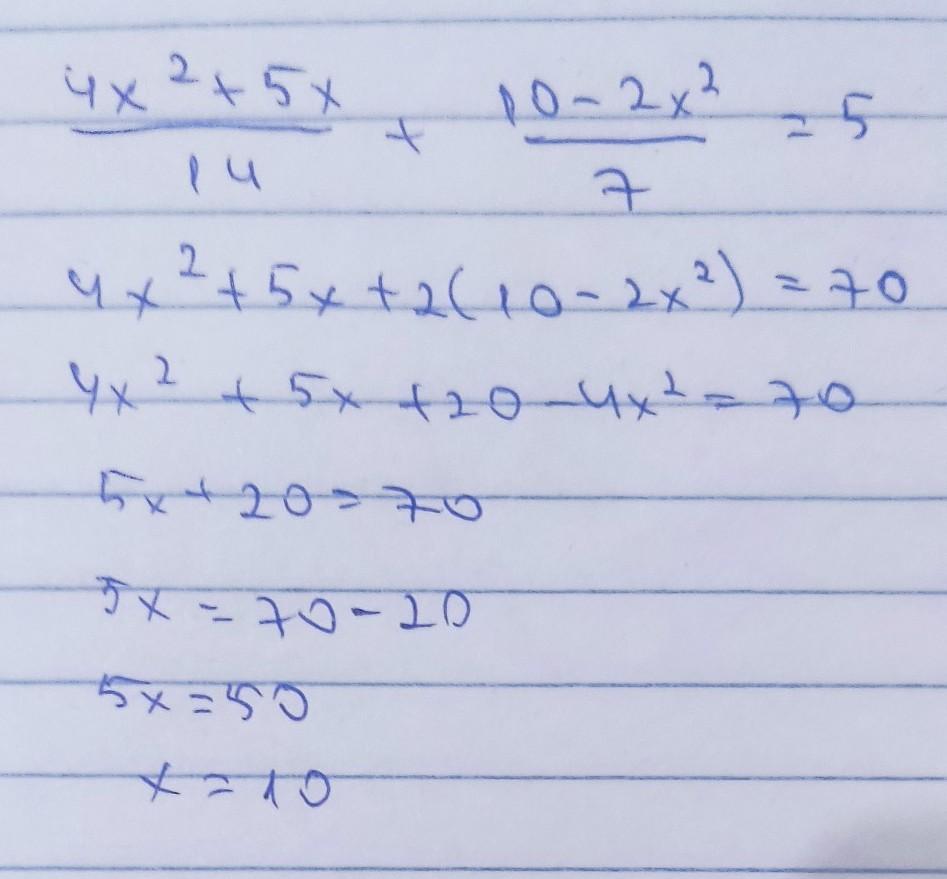 4x² + 5x / 14 + 10 - 2x² / 7 = 5
4x² + 5x + 2(10 - 2x²) = 70
4x² + 5x + 20 - 4x² = 70
5x + 20 = 70
5x = 70 - 20
5x = 50
x = 10